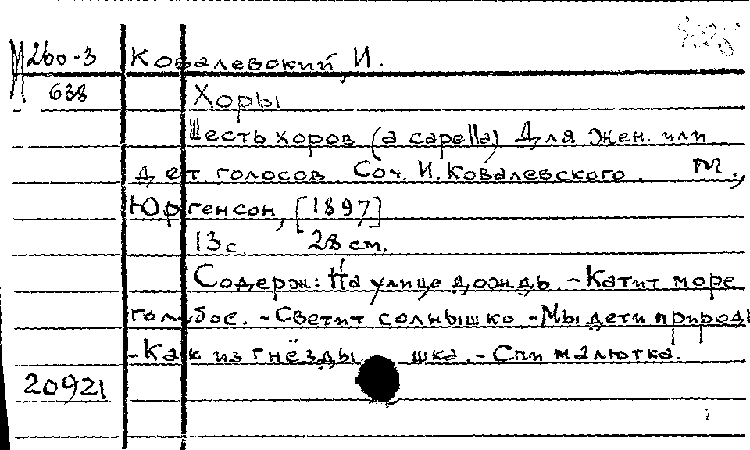 М 260-3 Ковалевский, И.
638 Хоры
Шесть хоров (a capella) Для жен. или
дет голосов Соч. И. Ковалевского. М.,
Юргенсон, [1897]
13 с. 28 см.
Содерж: На улице дождь. - Катит море
голубое. - Светит солнышко - Мы дети природы
- Как из гнёзды шка. - Спи малютка.
20921